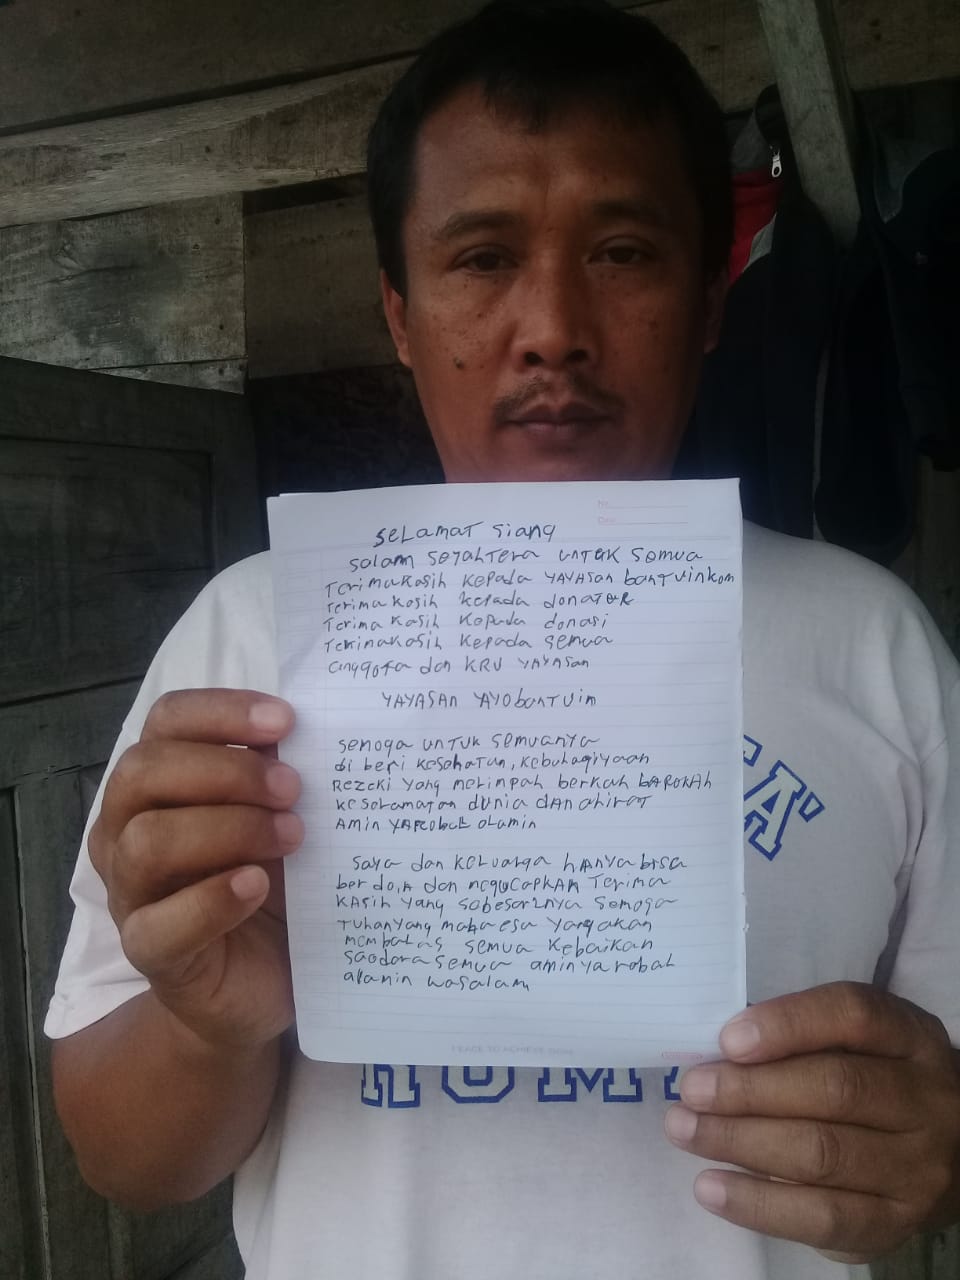 No
Date
seLamat siang
salam sejahtera untuk semua
Terimakasih kepada YAYASAn bantuinkom
Terima kasih kepada donatur
Terima kasih kepada donasi
Terimakasih kepada semua
anggota dan KRU YAYASAn
YAYASAn YAYObantuin
semoga untuk semuanya
di beri kesehatan, kebuhagiyaan
Rezeki yang melimpah berkah bAROKAH
keselamatan dunia dAn ahirat
Amin YARobal alamin
saya dan keluarga hAnya bisa
berdo,A dan ngucapkAn Terima
kAsih yang sebesar2nya semoga
Tuhanyang maha esa yangakan
membalas semua kebaikan
saodara semua amin ya robal
alamin wasalam